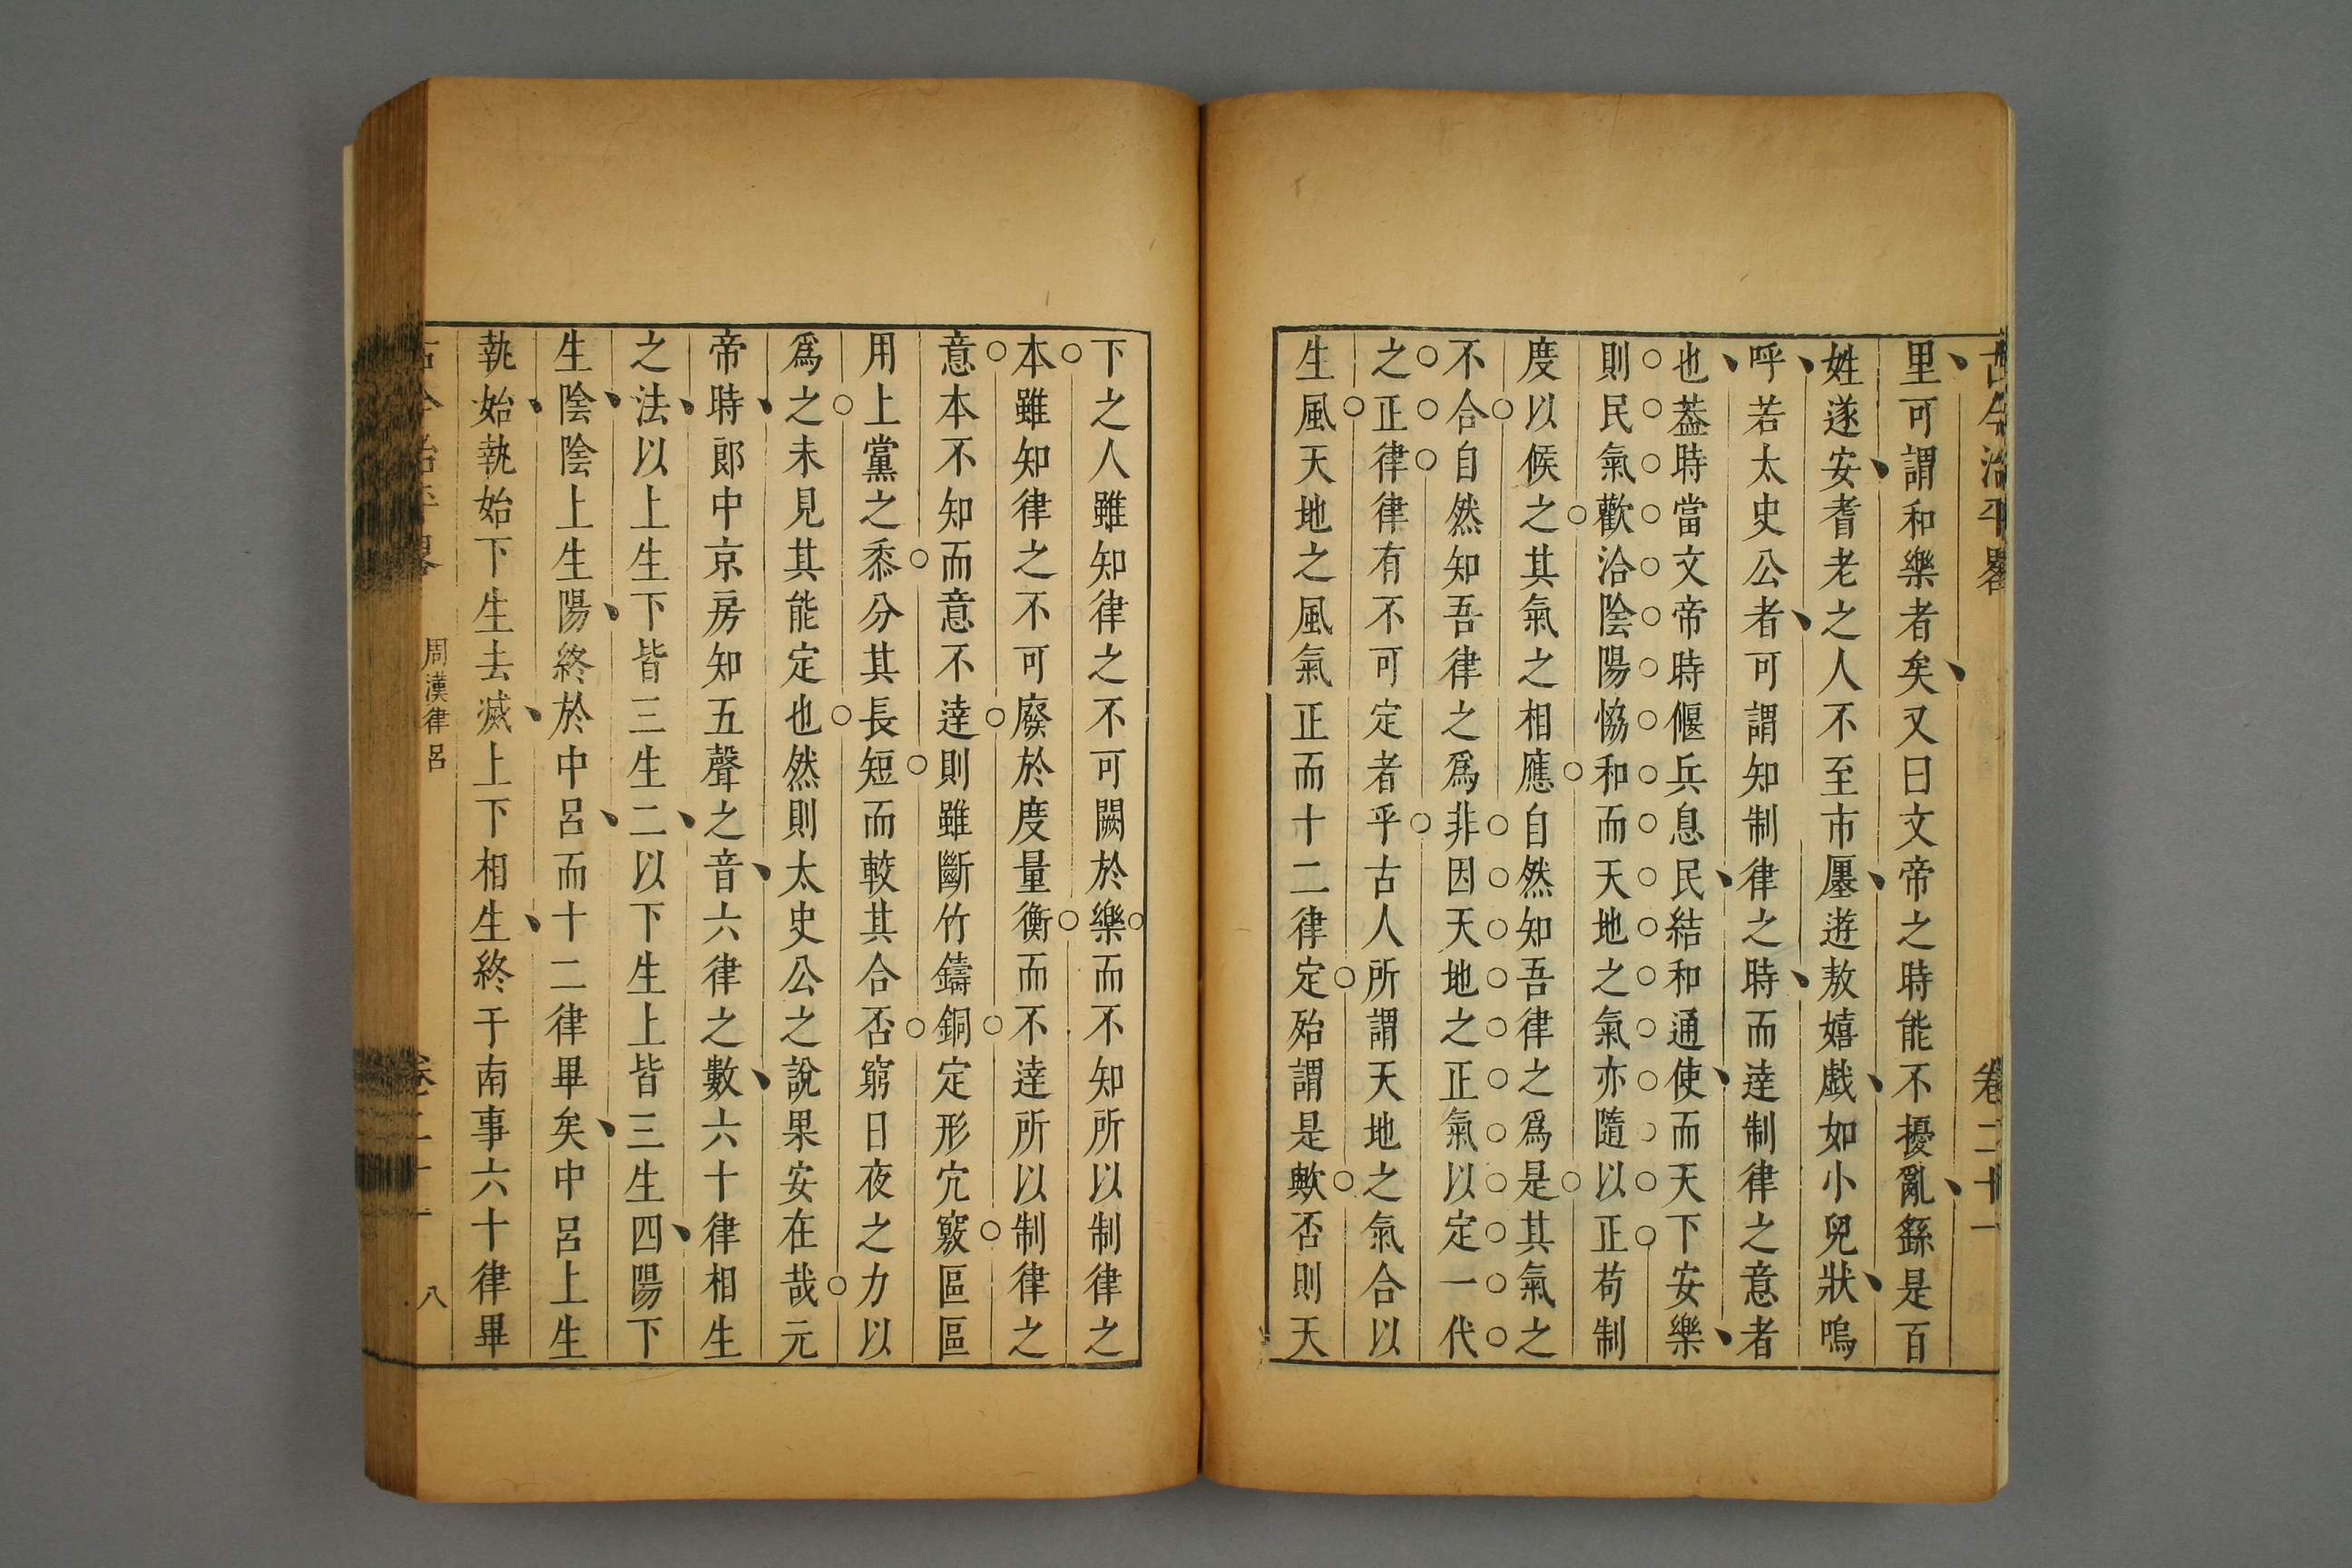 古今治平畧 卷二十一
里可謂和樂者矣又曰文帝之時能不擾亂繇是百
姓遂安耆老之人不至市廛遊敖嬉戲如小兒狀嗚
呼若太史公者可謂知制律之時而達制律之意者
也葢時當文帝時偃兵息民結和通使而天下安樂
則民氣歡洽陰陽恊和而天地之氣亦隨以正苟制
度以候之其氣之相應自然知吾律之為是其氣之
不合自然知吾律之爲非因天地之正氣以定一代
之正律律有不可定者乎古人所謂天地之氣合以
生風天地之風氣正而十二律定殆謂是歟否則天
下之人雖知律之不可闕於樂而不知所以制律之
本雖知律之不可廢於度量衡而不達所以制律之
意本不知而意不達則雖斷竹鑄銅定形穴竅區區
用上黨之黍分其長短而較其合否窮日夜之力以
爲之未見其能定也然則太史公之說果安在哉元
帝時郎中京房知五聲之音六律之數六十律相生
之法以上生下皆三生二以下生上皆三生四陽下
生陰陰上生陽終於中呂而十二律畢矣中呂上生
執始執始下生去滅上下相生終于南事六十律畢
古今治平畧 周漢律呂 卷二十一 八